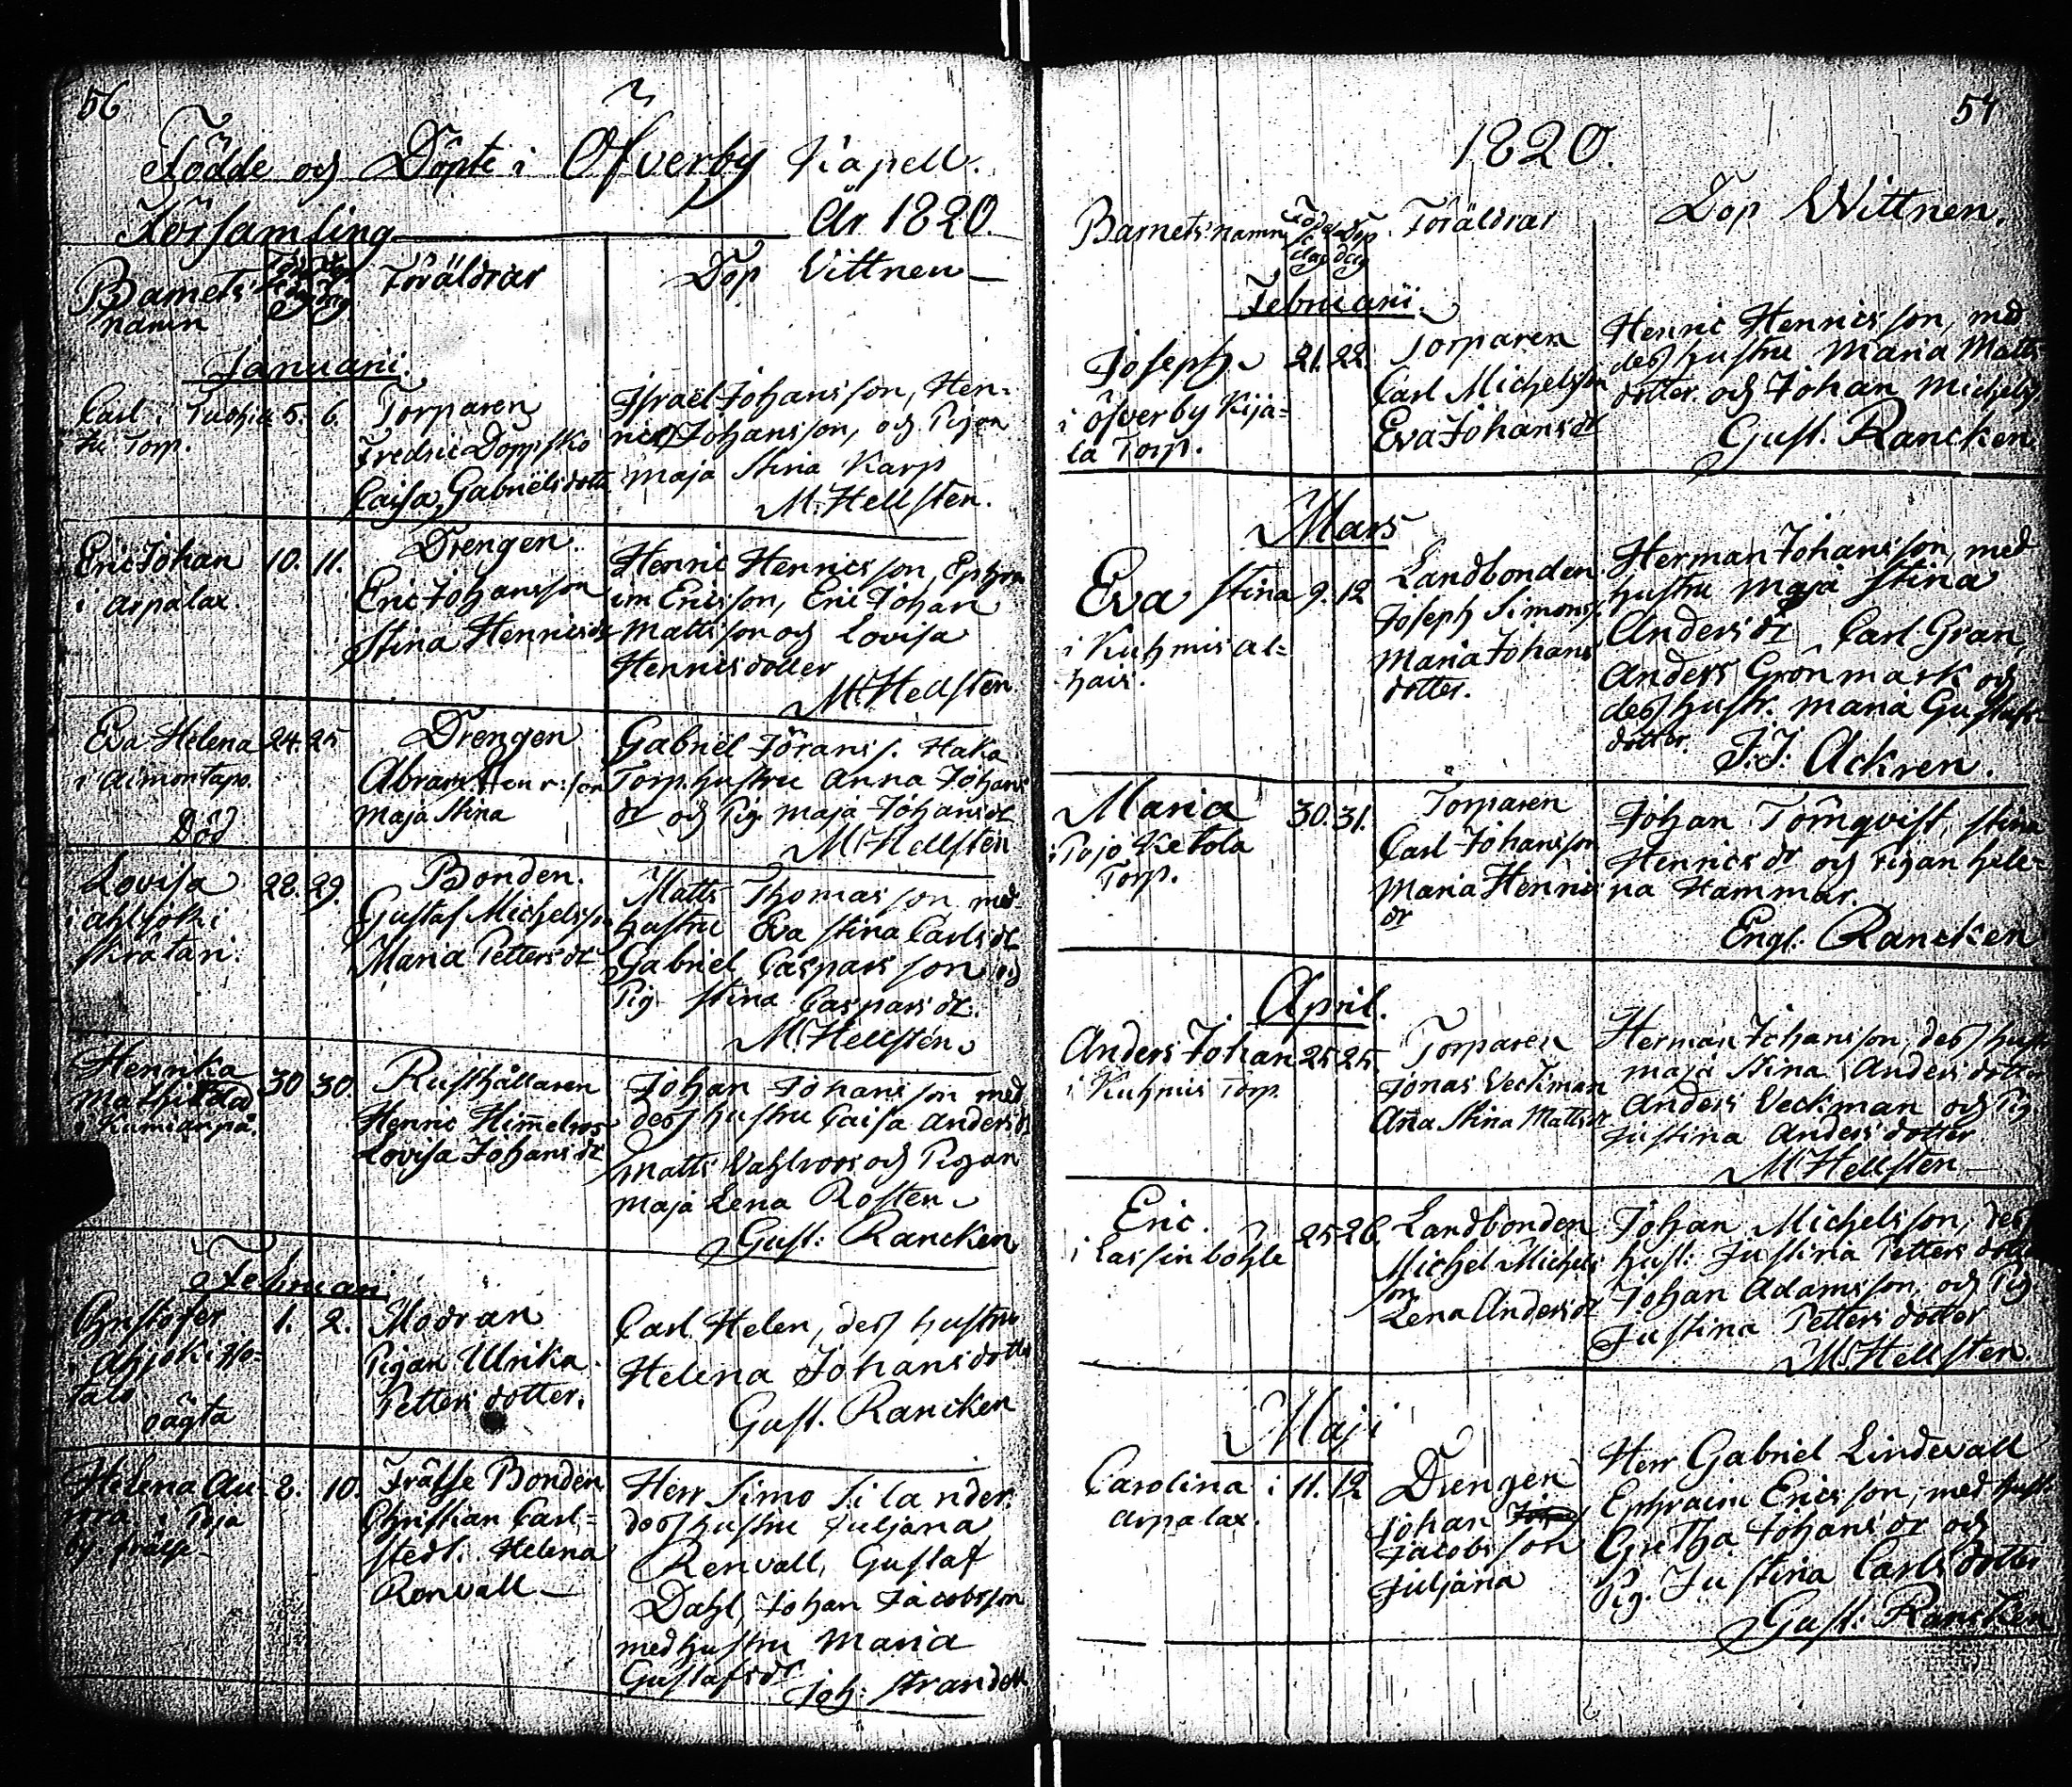 56
Födde och Döpte i Ofverby Kapell.
Församling År 1820.
Barnets namn Födelse dag Dop dag Föräldrar Dop Vittnen
Januarii.
Carl i 5. 6. Torparen Israël Johansson, Hen=
Torp. Fredric Doppisko ric Johansson, och Pigan
Caisa Gabrielsdotter Maja Stina Karp
M: Hellsten.
Eric Johan 10. 11. Drengen Henric Henricsson, Ephra
i Arpalax. Eric Johansson im Ericsson, Eric Johan
Stina Henricsdr Mattsson och Lovisa
Henricsdotter
M: Hellsten
Eva Helena 24. 25 Drengen Gabriel Jöranss. Haka
i Aimontapo. Abram Henr:son Torp. hustru Anna Johans
Maja Stina dr och Pig. Maja Johansdr
Död M: Hellsten
Lovisa 28. 29. Bonden. Matts Thomasson med
i Ahljoki Gustaf Michelsson hustru Eva Stina Carlsdr
Skrätari. Maria Pettersdr Gabriel Casparsson och
Pig. Stina Casparsdr.
M: Hellstén.
Henrika 30 30. Rusthållaren Johan Johansson med
Mathilda Henric Himmelroos dess hustru Caisa Andersdr
i Lovisa Johansdr Matts Vahlroos och Pigan
Maja Lena Rosten
Gust: Rancken
Februari
Christofer 1. 2. Modran Carl Helen, dess hustru
i Ahljoki Pigan Ulrika Helena Johansdotter
Pettersdotter. Gust. Rancken
oägta
Helena Au= 2. 10. Frälse Bonden Herr Simo Silander
rora i Poja Christian Carl= dess hustru Juljana
by. frälse stedt. Helena Renvall, Gustaf
Renvall Dahl, Johan Jacobsson
med hustru Maria
Gustafsdr Joh: Strandell
57
1820.
Barnets namn Födelse dag Dop dag Föräldrar Dop Wittnen.
Februarii.
Joseph 21. 22. Torparen Henric Henricsson, med
i Öfverby Kija= Carl Michelsson dess hustru Maria Matts
la Torp. Eva Johansdr dotter och Johan Michelss.
Gust. Rancken
Mars
Eva Stina 9. 12 Landbonden Herman Johansson, med
i Kuhmis al= Joseph Simonss. hustru Maja Stina
hais. Maria Johans Andersdr, Carl Gran,
dotter. Anders Grönmark och
dess hustr. Maria Gustafs=
dotter. J: J: Ackren.
Maria 30. 31. Torparen Johan Törnqvist, Stina
i Pojo Ketola Carl Johansson Henricsdr och Pigan Hele=
Torp. Maria Henrics na Hammar.
dr Engl: Rancken
April.
Anders Johan 25 25. Torparen Herman Johansson, dess hust.
i Kuhmis Torp. Jonas Veckman Maja Stina Andersdotter
Anna Stina Mattsdr Anders Veckman och Pig.
Justina Andersdotter
M: Hellsten
Eric. 25 26. Landbonden Johan Michelsson, dess
i Lassinböhle Michel Michels hust: Justina Pettersdotter
son Johan Adamsson, och Pig
Lena Andersdr Justina Pettersdotter
M: Hellsten
Maji
Carolina i 11. 12 Drengen Herr Gabriel Lindevall
Arpalax. Johan Ephraim Ericsson, med hust.
Jacobsson Gretha Johansdr och
Juljana Pig. Justina Carlsdotter
Gust: Rancken